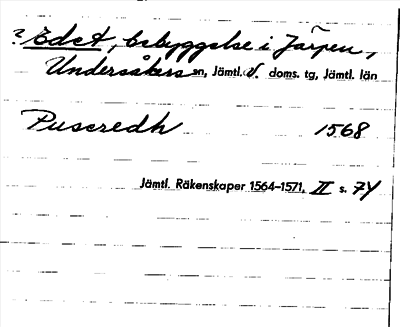 ? Edet, bebyggelse i Järpen,
Undersåkers sn, Jämtl. V. doms. tg, Jämtl. län
Puseredh 1568
Jämtl. Räkenskaper 1564-1571, II s. 74